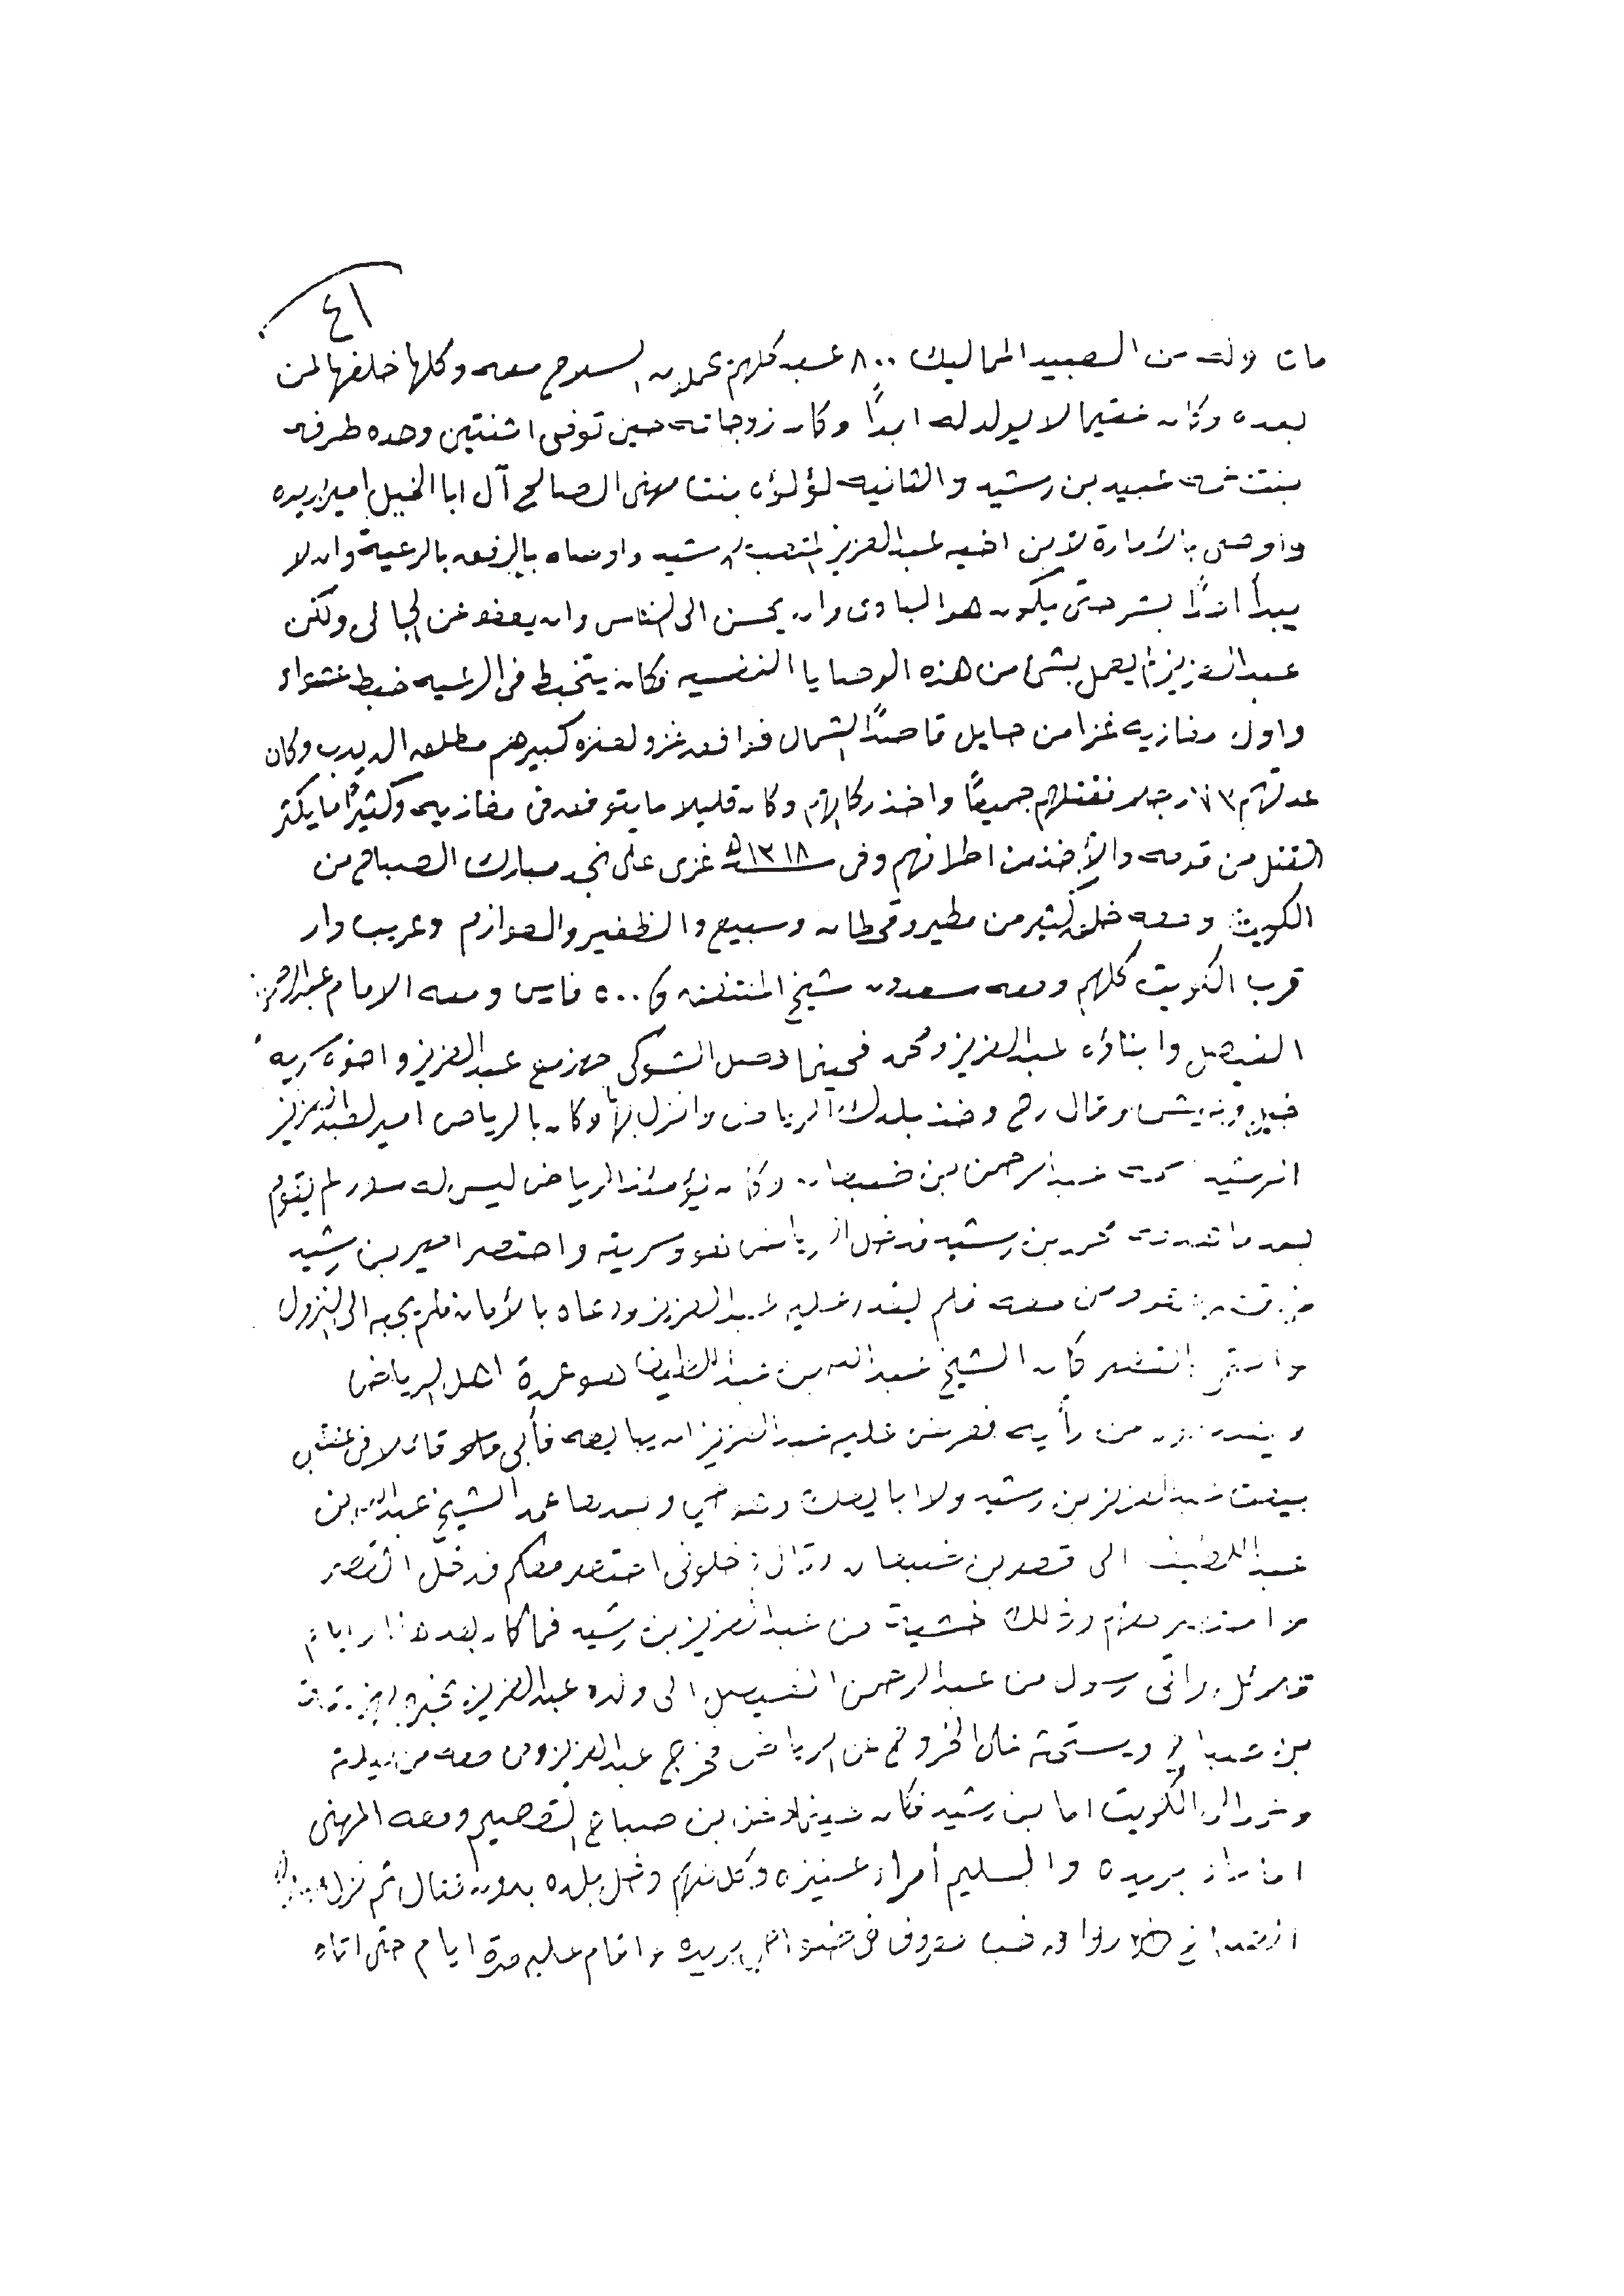 ٤١
مات وله من العبيد المماليك ٨٠٠ عبد كلهم يحملون السلاح معه وكلها خلفها لمن
بعده وكان عقيما لا يولد له ابدًا وكان زوجاته حين توفى اثنتين وحده طرفه
بنت عمه عبيد بن رشيد والثانيه لؤلؤه بنت مهنى الصالح آل ابا الخيل امير بريده
واوصى بالأمارة لأبن اخيه عبدالعزيز المتعب الرشيد واوصاه بالرفق بالرعية وان لا
يبدأ احدًا بشر حتى يكون هو البادى وان يحسن الى الناس وان يعفو عن الجالى ولكن
عبدالعزيز لم يعمل بشئ من هذه الوصايا النفسيه فكان يتخبط فى الرعيه خبط عشواء
واول مغازيه غزا من حايل قاصدًا الشمال فوافق غزو لعنزه كبيرهم مطلق الديدب وكان
عدتهم ١٧٣ رجلا فقتلهم جميعًا واخذ ركابهم وكان قليلا ما يتوفق فى مغازيه وكثيرًا ما يكثر
القتل من قومه والأخذ من اطرافهم وفى ١٣١٨ﻫ غزى على نجد مبارك الصباح من
الكويت ومعه خلق كثير من مطير وقحطان وسبيع والظفير والعوازم وعريب دار
قرب الكويت كلهم ومعه سعدون شيخ المنتفق و ٥٠٠ فارس ومعه الامام عبدالرحمن
الفيصل وابناؤه عبدالعزيز ومحمد فحينما وصل الشوكى جهز مع عبدالعزيز واخوه سريه
وقال رح وخذ بلدك الرياض وانزل بها وكان بالرياض امير لعبدالعزيز
الرشيد عبدالرحمن بن ضبعان وكان يومئذ الرياض ليس له سور لم يقوم
بعد ما محمد بن رشيد فدخل الرياض هو وسريته واحتصر امير بن رشيد
هو ومن معه فلم يقدر عليه عبدالعزيز ودعاه بالأمان فلم يجبه الى النزول
القصر كان الشيخ عبدالله بن عبداللطيف هو عمدة اهل الرياض
من رأيه فعرض عليه عبدالعزيز ان يبايعه فأبى وقال لا فى عنقى
بيعت عبدالعزيز بن رشيد ولا ابايعك وهو حي وبعدها عمد الشيخ عبدالله بن
عبداللطيف الى قصر بن ضبعان وقال خلونى احتصر معكم فدخل القصر
واحتصر معهم وذلك خشية من عبدالعزيز بن رشيد فما كان بعد ايام
واتى رسول من عبدالرحمن الفيصل الى ولده عبدالعزيز يخبره بهزيمة
بن صباح ويستحثه على الخروج من الرياض فخرج عبدالعزيز ومن معه من ليلته
الى الكويت اما بن رشيد فكان بن صباح القصيم ومعه المهنى
امراء بريده والسليم أمراء عنيزه وكل منهم دخل بلده بدون قتال ثم نزل
معروف بريده واقام عليه مدة ايام حتى اتاه